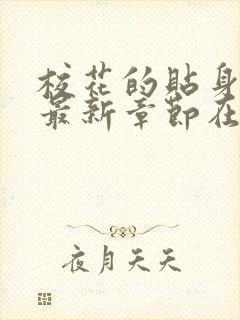 校花的貼身
最新章節在
夜月天天